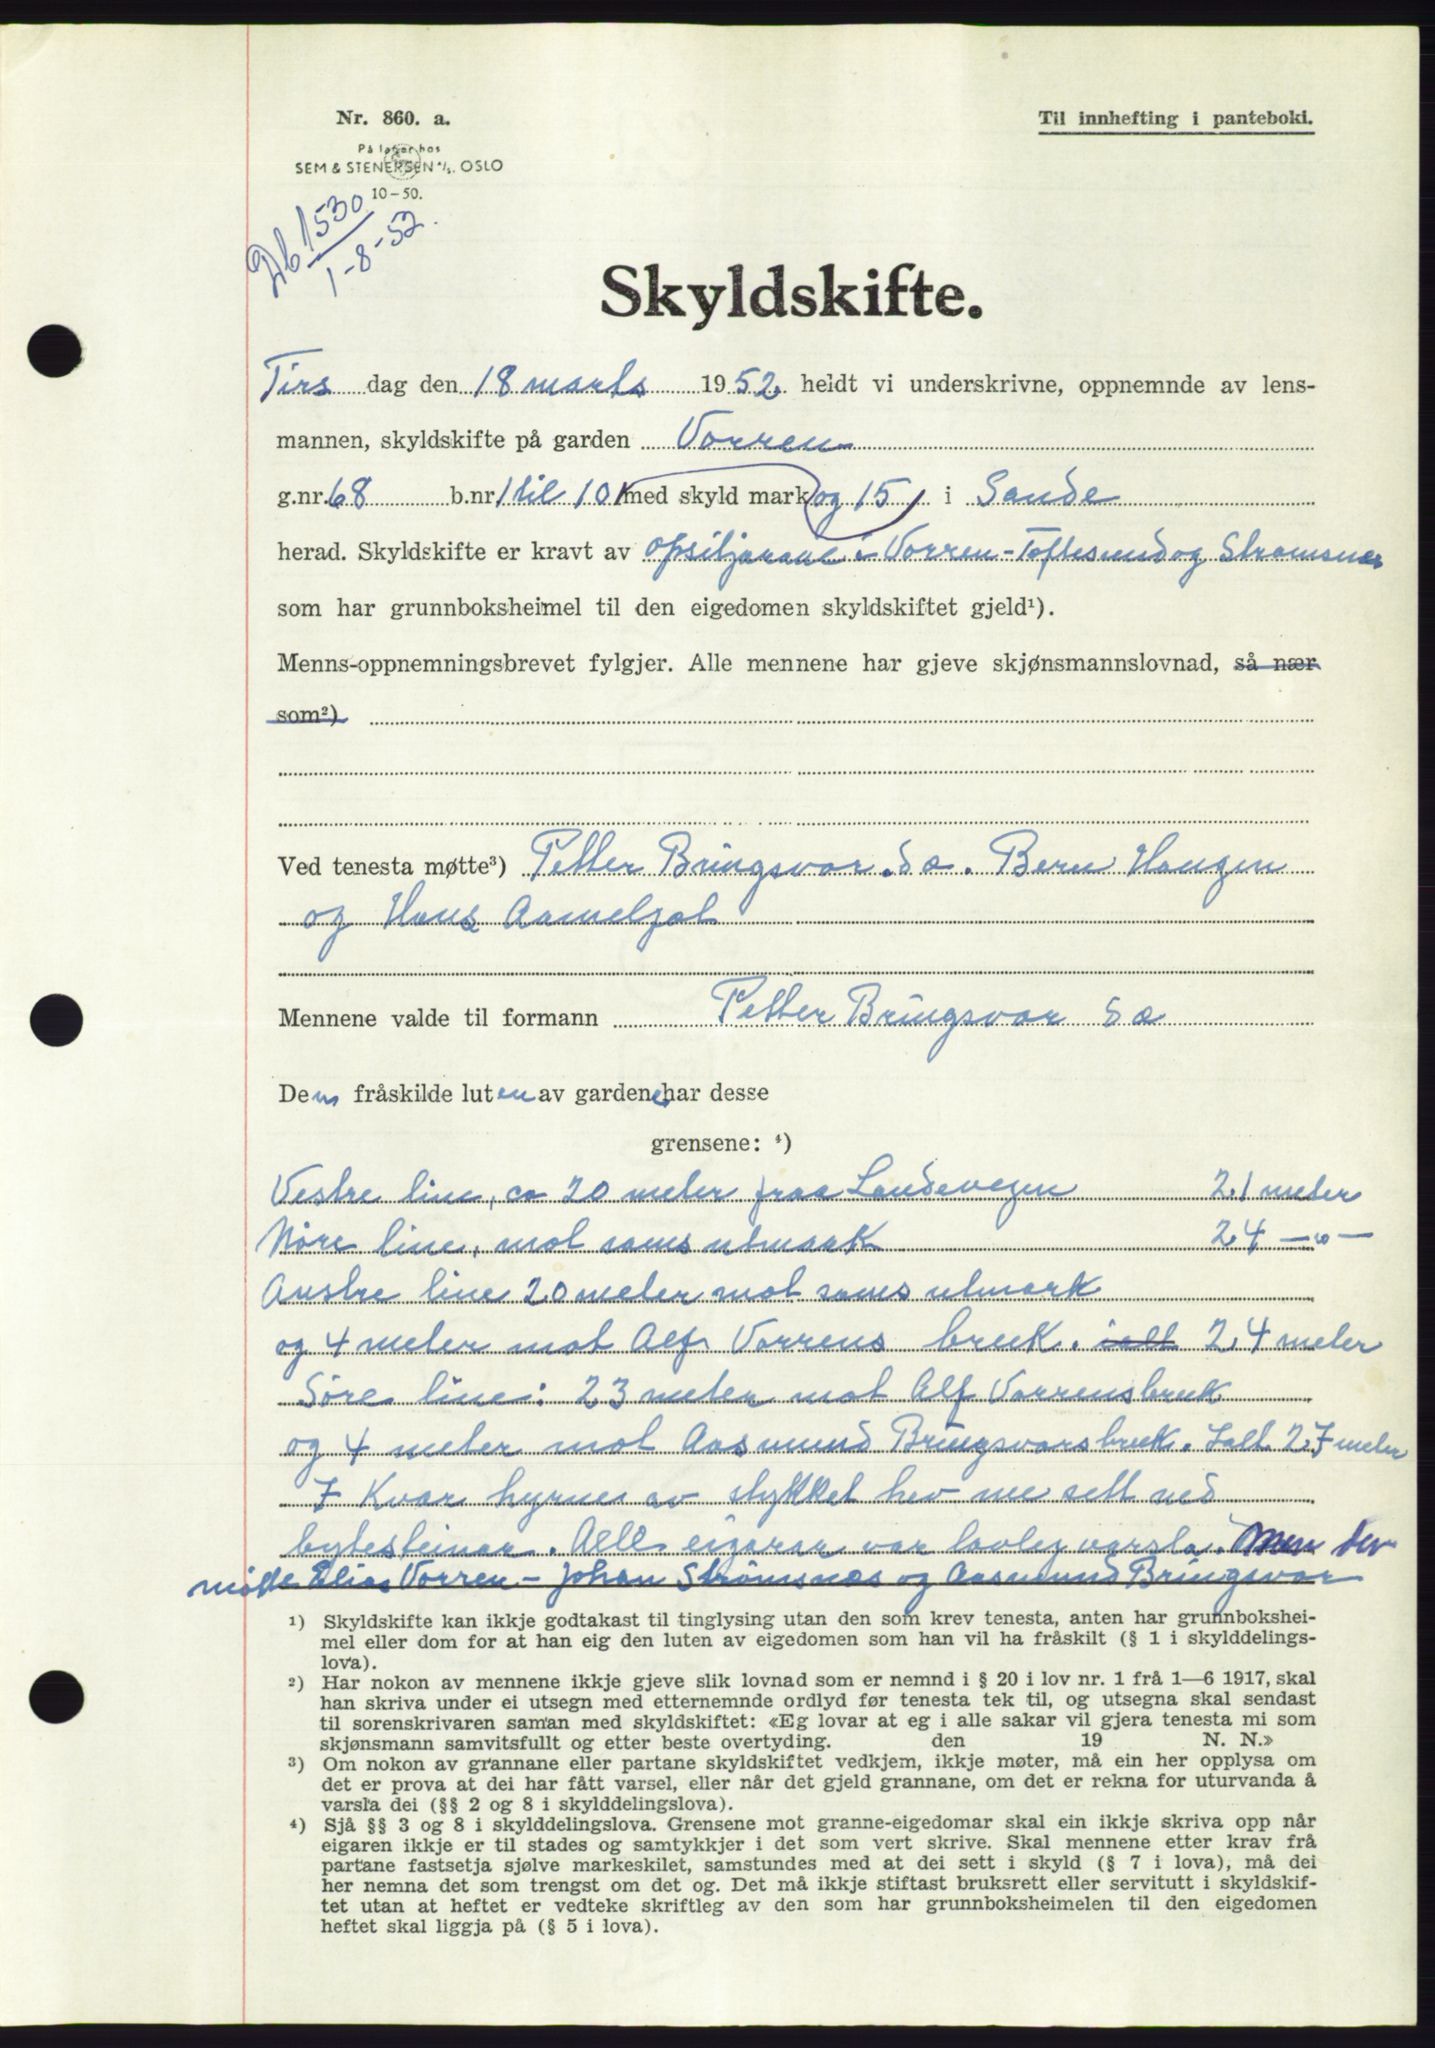 Nr. 860. a.
Til innhefting i panteboki.
På lager hos
SEM & STENERSEN A/S. OSLO
10-50.
Db 1530
1-8-52.
Skyldskifte.
Tirs dag den 18 marts 1952. heldt vi underskrivne, oppnemnde av lens-
mannen, skyldskifte på garden Vorren
g.nr. 68 b.nr. 1 til 10 med skyld mark og 15 i Sande
herad. Skyldskifte er kravt av opsitjarane i Vorren-Toftesund og Stromsnes
som har grunnboksheimel til den eigedomen skyldskiftet gjeld¹).
Menns-oppnemningsbrevet fylgjer. Alle mennene har gjeve skjønsmannslovnad, så nær
som²)
Ved tenesta møtte³) Petter Bringsvor. Sa. Bern Haugen
og Hans Aamelfot
Mennene valde til formann Petter Bringsvor Sa
Den fråskilde luten av gardene har desse
grensene: ⁴)
Vestre line, ca 20 meter fraa Landevegen 21 meter
Nøre line, mot sams utmark 24 -"-
Austre line 20 meter mot sams utmark
og 4 meter mot Alf Vorrens bruk. ialt 24 meter
Søre line: 23 meter mot Alf Vorrens bruk
og 4 meter mot Aasmund Bringsvors bruk. Ialt 27 meter
I kvar hyrne av stykket hev me sett ned
bytesteinar. Alle eigarar var lovleg varsla. Men der
møtte Elias Vorren - Johan Strømsnes og Aasmund Bringsvor
¹) Skyldskifte kan ikkje godtakast til tinglysing utan den som krev tenesta, anten har grunnbokshei-
mel eller dom for at han eig den luten av eigedomen som han vil ha fråskilt (§ 1 i skylddelings-
lova).
²) Har nokon av mennene ikkje gjeve slik lovnad som er nemnd i § 20 i lov nr. 1 frå 1—6 1917, skal
han skriva under ei utsegn med etternemnde ordlyd før tenesta tek til, og utsegna skal sendast
til sorenskrivaren saman med skyldskiftet: «Eg lovar at eg i alle sakar vil gjera tenesta mi som
skjønsmann samvitsfullt og etter beste overtyding. den 19 N. N.»
³) Om nokon av grannane eller partane skyldskiftet vedkjem, ikkje møter, må ein her opplysa om
det er prova at dei har fått varsel, eller når det gjeld grannane, om det er rekna for uturvanda å
varsla dei (§§ 2 og 8 i skylddelingslova).
⁴) Sjå §§ 3 og 8 i skylddelingslova. Grensene mot granne-eigedomar skal ein ikkje skriva opp når
eigaren ikkje er til stades og samtykkjer i det som vert skrive. Skal mennene etter krav frå
partane fastsetja sjølve markeskilet, samstundes med at dei sett i skyld (§ 7 i lova), må dei
her nemna det som trengst om det og. Det må ikkje stiftast bruksrett eller servitutt i skyldskif-
tet utan at heftet er vedteke skriftleg av den som har grunnboksheimelen til den eigedomen
heftet skal liggja på (§ 5 i lova).